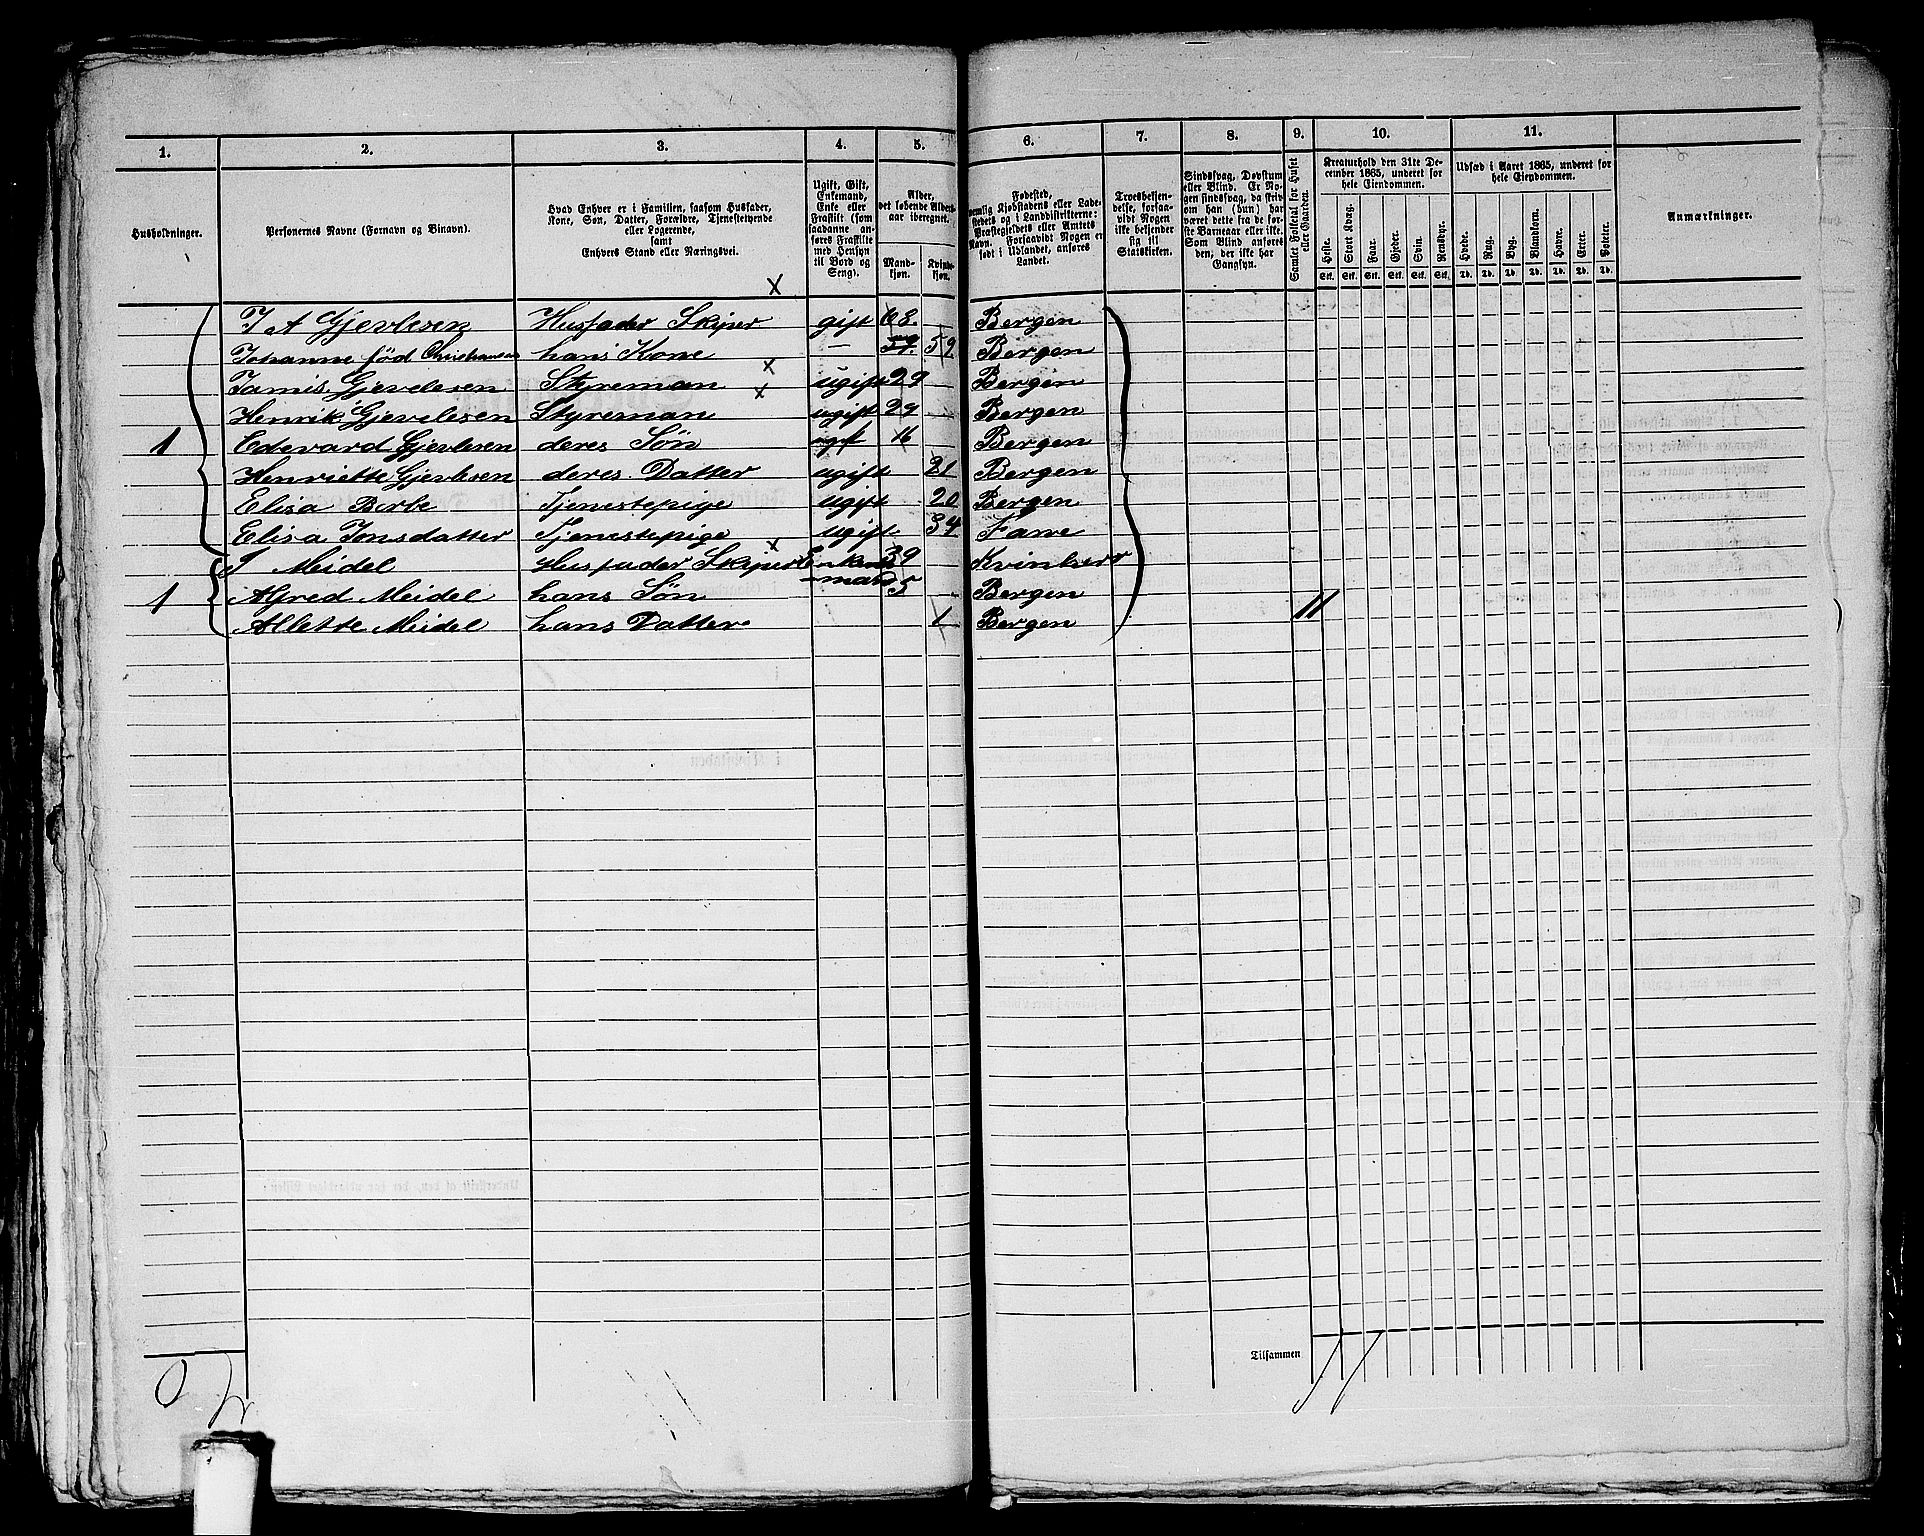 1. 2. 3. 4. 5. 6. 7. 8. 9. 10. 11.
Husholdninger.
Personernes Navne (Fornavn og Binavn).
Hvad Enhver er i Familien, saasom Husfader, Kone, Søn, Datter, Forældre, Tjenestetyende eller Logerende, samt Enhvers Stand eller Næringsvei.
Ugift, Gift, Enkemand, Enke eller Fraskilt (som saadanne anføres Fraskilte med Hensyn til Bord og Seng).
Alder, det løbende Alders-aar iberegnet.
Mand-kjøn. Kvinde-kjøn.
Fødested, nemlig Kjøbstadens eller Ladestedets og i Landdistrikterne: Præstegjeldets eller Amtets Navn. Forsaavidt Nogen er født i Udlandet, anføres Landet.
Troesbekjendelse, forsaavidt Nogen ikke bekjender sig til Statskirken.
Sindssvag, Døvstum eller Blind. Er Nogen sindssvag, da skrives om han (hun) har været dette fra de første Barneaar eller ikke. Som Blind anføres den, der ikke har Gangsyn.
Samlet Folketal for Huset eller Gaarden.
Kreaturhold den 31te December 1865, underet for hele Eiendommen.
Heste. Stort Kvæg. Faar. Gjeder. Svin. Rensdyr.
Stk. Stk. Stk. Stk. Stk. Stk.
Udsæd i Aaret 1865, underet for hele Eiendommen.
Hvede. Rug. Byg. Blandkorn. Havre. Erter. Poteter.
Td. Td. Td. Td. Td. Td. Td.
Anmærkninger.
I A Gjevlesen Husfader Skiper gift 68. Bergen
Johanne fød Christensen hans Kone — 59. 59 Bergen
Jamis Gjevlesen Styreman ugift 29 Bergen
Henrik Gjevlesen Styreman ugift 29 Bergen
1 Edevard Gjevlesen deres Søn ugift 16 Bergen
Henriette Gjevlesen deres Datter ugift 21 Bergen
Elisa Borbe Tjenestepige ugift 20 Bergen
Elisa Jonsdatter Tjenestepige ugift 34 Fane
J Meidel Husfader Skiper Enke- 39 Kvinherr
1 Alfred Meidel hans Søn mand 5 Bergen
Allette Meidel hans Datter 1 Bergen 11
Tilsammen 11